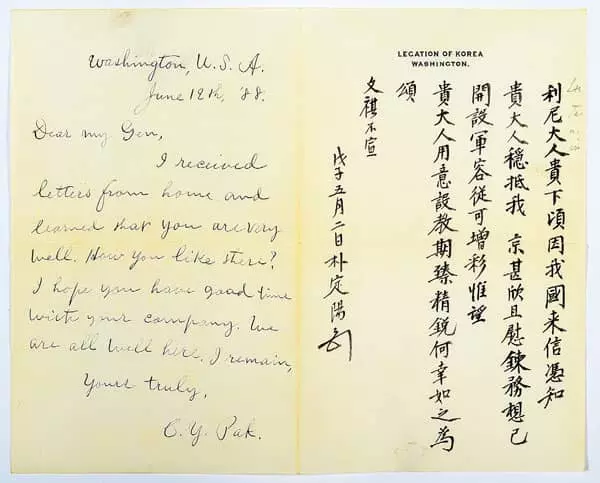 Washington, U. S. A.
June 12th, '88.
Dear my Gen,
I received
letters from home and
learned that you are very
well. How you like there?
I hope you have good time
with your company. We
are all well here. I remain,
Yours truly,
C. Y. Pak.
LEGATION OF KOREA
WASHINGTON.
利尼大人貴下頃因我國来信憑知
貴大人穩抵我 京甚欣且慰鍊務想已
開設軍容從可增彩惟望
貴大人用意設教期臻精銳何幸如之為
頌
文祺不宣
戊子五月二日朴定陽